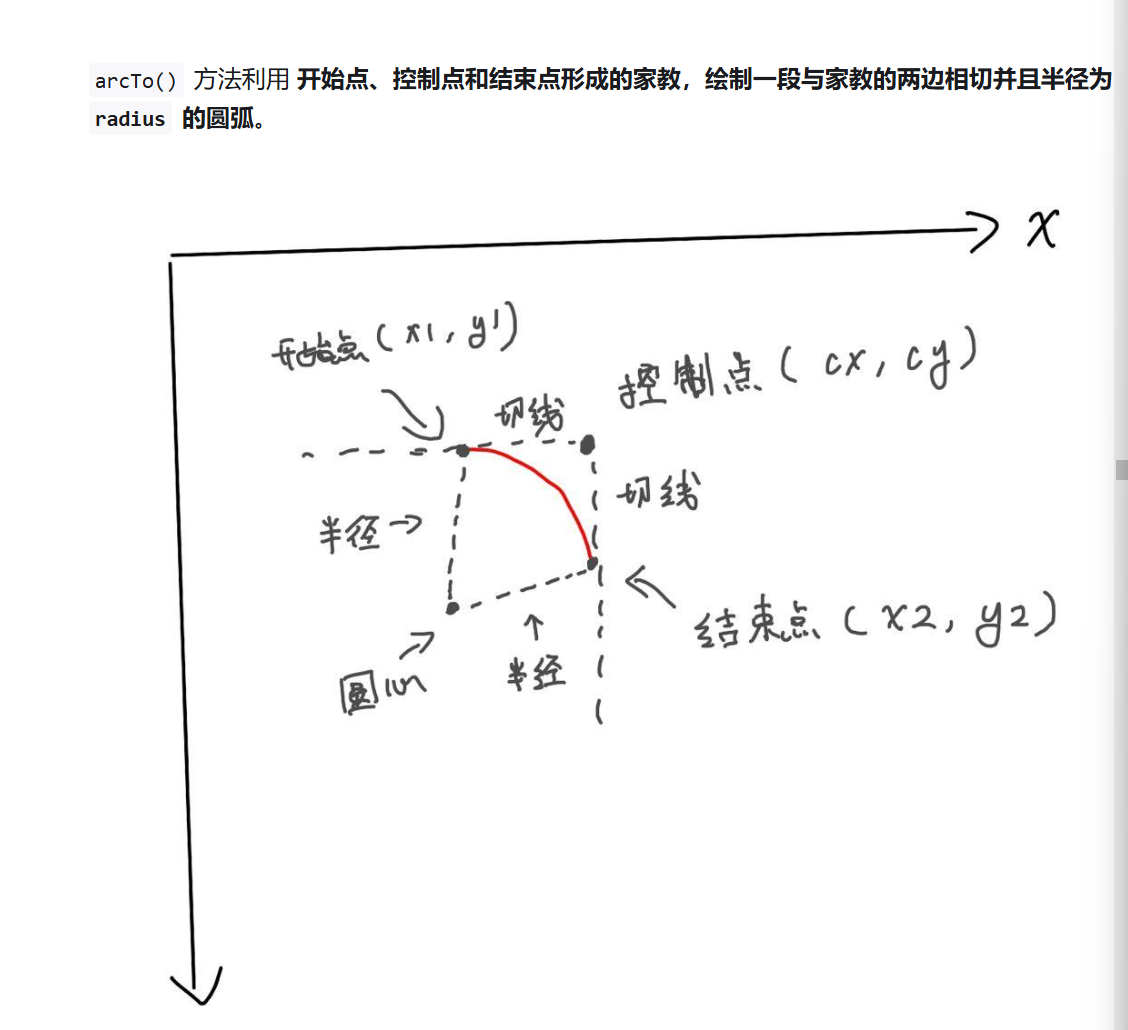 arcTo() 方法利用 开始点、控制点和结束点形成的家教，绘制一段与家教的两边相切并且半径为
radius 的圆弧。
X
开始点(x1, y1)
控制点(cx, cy)
切线
切线
半径
结束点(x2, y2)
半径
圆心